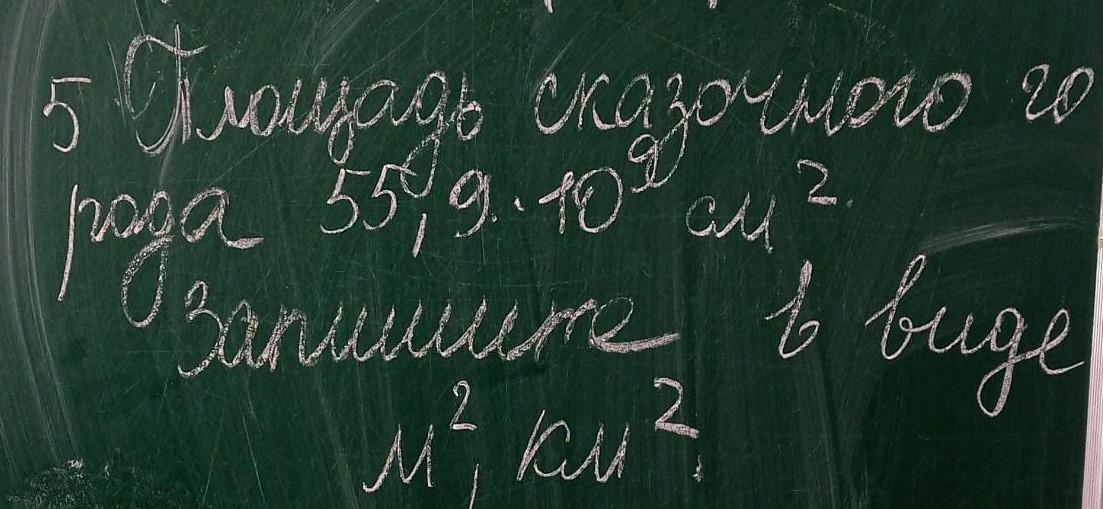 5 Площадь сказочного го
рода 55,9 · 10⁹ см².
Запишите в виде
м², км².